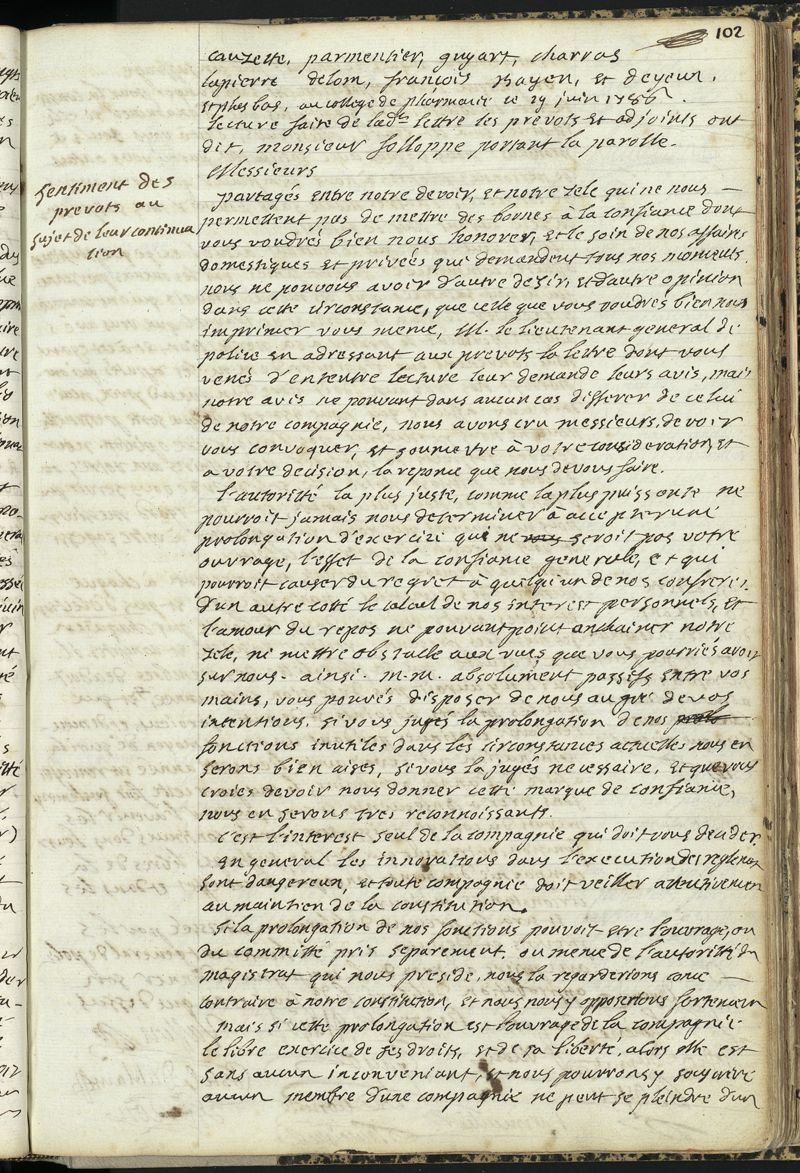 102
Cauzette, parmentier, guyart, charras
lapierre delom, françois Bayen, et deyeux.
et plus bas, au college de pharmacie ce 19 juin 1786.
Lecture faite de lade lettre les prevots et adjoints ont
dit, monsieur folloppe portant la parolle.
Messieurs
Sentiment des
prevots au
sujet de leur continua
tion
partagés entre notre devoir, et notre zele qui ne nous
permettent pas de mettre des bornes à la confiance dont
vous voudrés bien nous honorer, et le soin de nos affaires
domestiques et privées qui demandent tous nos moments.
nous ne pouvons avoir d'autre desir, et d'autre opinion
dans cette circonstance, que celle que vous voudrés bien nous
imprimer vous meme, M. le lieutenant general de
police en adressant aux prevots la lettre dont vous
venés d'entendre lecture leur demande leurs avis, mais
notre avis ne pouvant dans aucun cas differer de celui
de notre compagnie, nous avons cru messieurs, devoir
vous convoquer, et soumettre à votre consideration, et
a votre decision, la reponce que nous devons faire.
l'autorité la plus juste, comme la plus puissante ne
pourroit jamais nous determiner à accepter une
prolongation d'exercice qui ne seroit pas votre
ouvrage, l'effet de la confiance generale, et qui
pourroit causer du regret à quelqu'un de nos confreres.
d'un autre cotté le calcul de nos interest personnels, et
l'amour du repos ne pouvant point enchainer notre
zele, ni mettre obstacle aux vues que vous pourriés avoir
sur nous. ainsi. m.m. absolument passifs entre vos
mains, vous pouvés disposer de nous au gré de vos
intentions. si vous jugés la prolongation de nos
fonctions inutiles dans les circonstances actuelles nous en
serons bien aises, si vous la jugés necessaire, et que vous
croiés devoir nous donner cette marque de confiance,
nous en serons tres reconnoissants.
c'est l'interest seul de la compagnie qui doit vous decider.
en general les innovations dans l'execution des reglemens
sont dangereux, et toute compagnie doit veiller attentivement
au maintien de la constitution.
si la prolongation de nos fonctions pouvoit etre l'ouvrage, ou
du committé pris separement, ou meme de l'autorité du
magistrat qui nous preside, nous la regarderions comme
contraire à notre constitution, et nous nous y opposerions fortement
mais si cette prolongation est l'ouvrage de la compagnie
le libre exercice de ses droits, et de sa liberté, alors elle est
sans aucun inconveniant, et nous pourrons y souscrire
aucun membre d'une compagnie ne peut se pleindre d'un